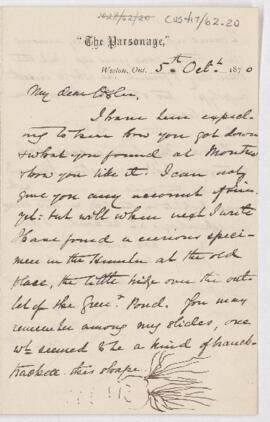 CUS417/62.20
"The Parsonage,"
Weston, Ont. 5th Octr. 1870
My dear Osler,
I have been expect-
ing to hear how you got down
& what you found at Montreal
& how you like it. I can not
give you any account of
yet: but will when next I write
I have found a curious speci-
men in the at the old
place, the little bridge over the out-
let of the Green Pond. You may
remember among my slides, one
wh. seemed to be a kind of branch
this shape.